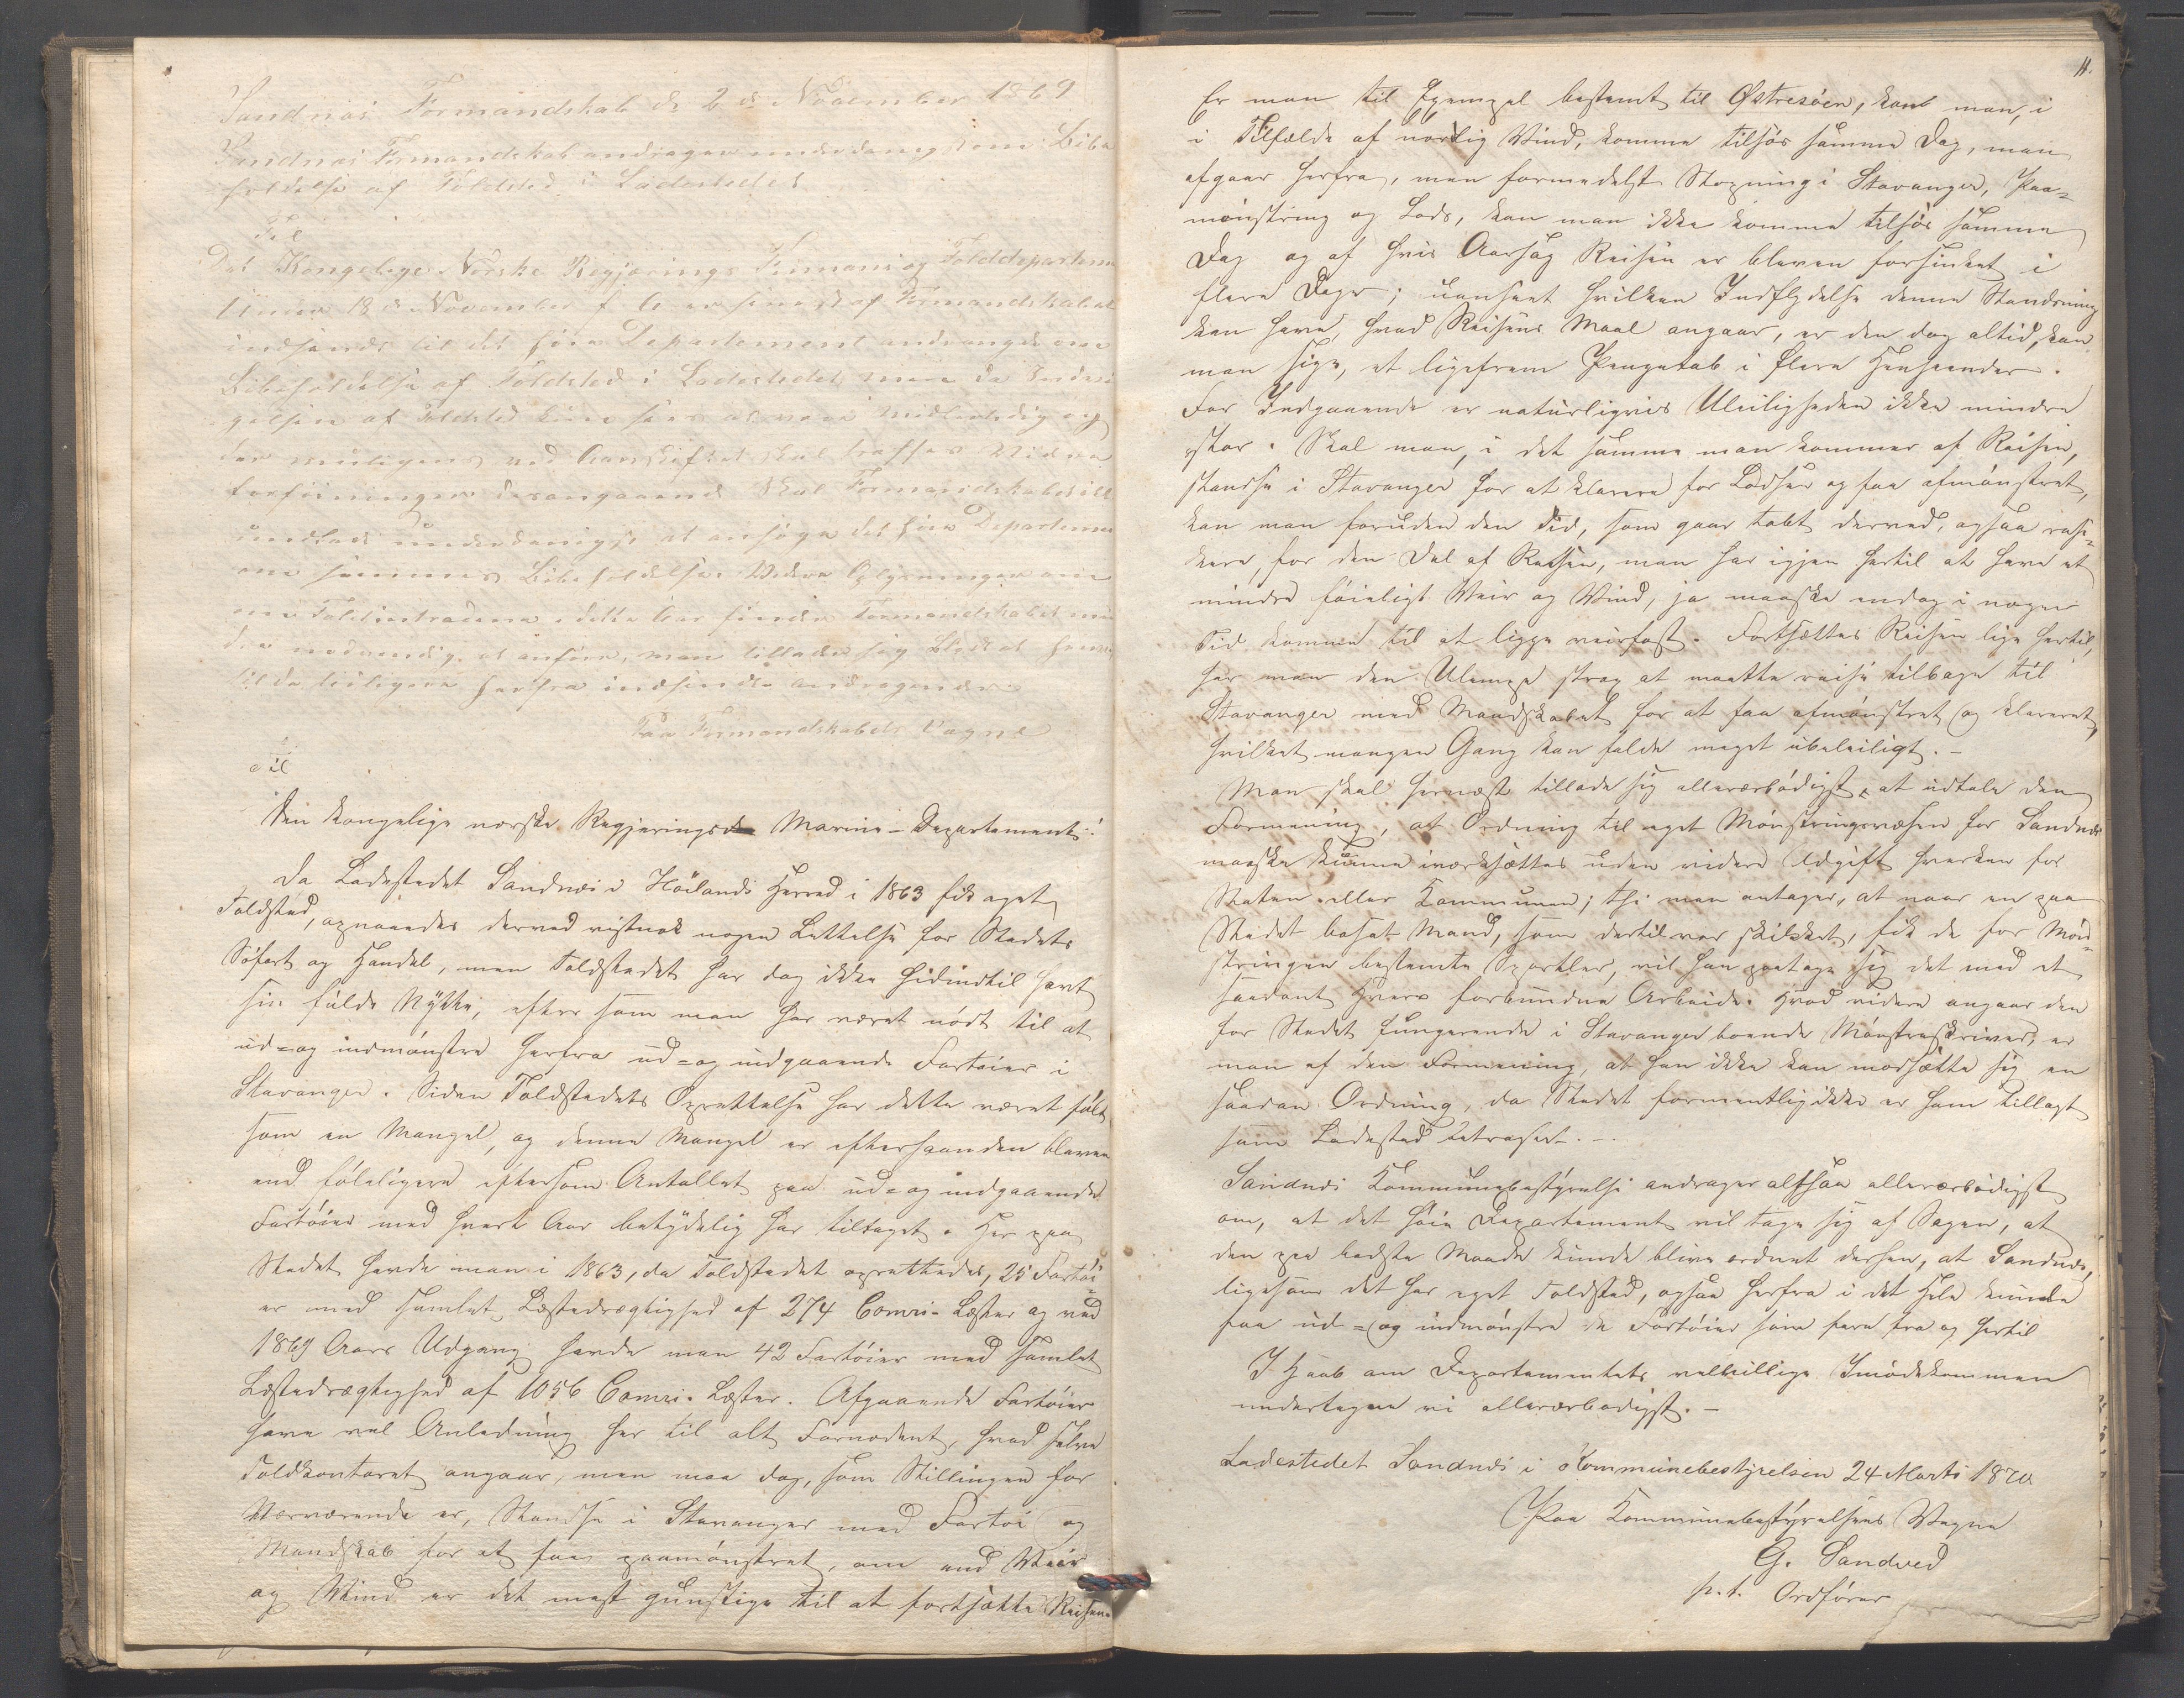 Sandnæs Formandskab d. 2 de November 1869
Sandnæs Formandskab andrager underdanigst om Bibe
holdelse af Toldsted i Ladestedet
Til
Det Kongelige Norske Regjerings Finans og Tolddepartem
Under 18 de November f. A. af Formandskabet
indsendt til det høie Departement andragende om
Bibeholdelse af Toldsted i Ladestedet, men da
gelsen af Toldsted kun er midlertidig og
der muligens ved Aarsskiftet skal træffes videre
forføininger desangaaende skal Formandskabet ikke
undlade underdanigst at ansøge det høie Departement
om sammes Bibeholdelse. Videre Oplysninger om
Toldintraderne i dette Aar finder Formandskabet
nødvendig at anføre, men tillader sig blot at henvise
til de tidligere herfra indsendte Andragender
Paa Formandskabets Vegne
Til
Den kongelige norske Regjerings Marine-Departement!
Da Ladestedet Sandnæs i Høilands Herred i 1863 fik eget
Toldsted, opnaaedes derved vistnok nogen Lettelse for Stedets
Søfart og Handel, men Toldstedet har dog ikke hidindtil havt
sin fulde Nytte, efter som man har været nødt til at
ud- og indmønstre herfra ud- og indgaaende Fartøier i
Stavanger. Siden Toldstedets Oprettelse har dette været følt
som en Mangel, og denne Mangel er efterhaanden bleven
end føleligere eftersom Antallet paa ud- og indgaaende
Fartøier med hvert Aar betydelig har tiltaget. Her paa
Stedet havde man i 1863, da Toldstedet oprettedes, 25 Fartøi-
er med samlet Læstedrægtighed af 274 Comrs-Læster og ved
1869 Aars Udgang havde man 42 Fartøier med samlet
Læstedrægtighed af 1056 Comrs. Læster. Afgaaende Fartøier
have vel Anledning her til alt Fornødent, hvad selve
Toldkontoret angaar, men maa dog, som Stillingen for
Nærværende er, Standse i Stavanger med Fartøi og
Mandskab for at faae paamønstret, om end Veir
og Vind er det mest gunstige til at fortsætte Reisen.
11.
Er man til Exempel bestemt til Østresøen, kan man, i
i Tilfælde af nordlig Vind, komme tilsøs samme Dag, man
afgaar herfra, men formedelst Stopning i Stavanger, Paa-
mønstring og Lods, kan man ikke komme tilsøs samme
Dag og af hvis Aarsag Reisen er bleven forsinket i
flere Dage; uanseet hvilken Indflydelse denne Standsning
kan have, hvad Reisens Maal angaar, er den dog altid, kan
man sige, et ligefrem Pengetab i flere Henseender.
For Indgaaende er naturligvis Uleiligheden ikke mindre
stor. Skal man, i det samme man kommer af Reisen,
standse i Stavanger for at klarere for Lodsen og faa afmønstret,
kan man foruden den Tid, som gaar tabt derved, ogsaa risi-
kere, for den Del af Reisen, man har igjen hertil at have et
mindre føieligt Veir og Vind, ja maaske endog i nogen
Tid komme til at ligge veirfast. Fortsættes Reisen lige hertil,
har man den Ulempe strax at maatte reise tilbage til
Stavanger med Mandskabet for at faa afmønstret og klareret,
hvilket mangen Gang kan falde meget ubeleiligt. -
Man skal hernæst tillade sig allerærbødigst, at udtale den
Formening, at Ordning til eget Mønstringsvæsen for Sandnæs
maaske kunne iværksættes uden videre Udgift hverken for
Staten eller Kommunen; thi man antager, at naar en paa
Stedet bosat Mand, som dertil var skikket, fik de for Møn-
stringen bestemte Sportler, vil han paatage sig det med et
saadant Hverv forbundne Arbeide. Hvad videre angaar den
for Stedet fungerende i Stavanger boende Mønsterskriver, er
man af den Formening, at han ikke kan modsætte sig en
saadan Ordning, da Stedet formentlig ikke er ham tillagt
som Ladested betragtet. -
Sandnæs Kommunebestyrelse andrager altsaa allerærbødigst
om, at det høie Departement vil tage sig af Sagen, at
den paa bedste Maade kunde blive ordnet derhen, at Sandnæs,
ligesom det har eget Toldsted, ogsaa herfra i det Hele kunde
faa ud- og indmønstre de Fartøier som fare fra og hertil
I Haab om Departementets velvillige Imødekommen
undertegne vi allerærbødigst. -
Ladestedet Sandnæs i Kommunebestyrelsen 24 Marts 1870
Paa Kommunebestyrelsens Vegne
G. Sandved
p. t. Ordfører